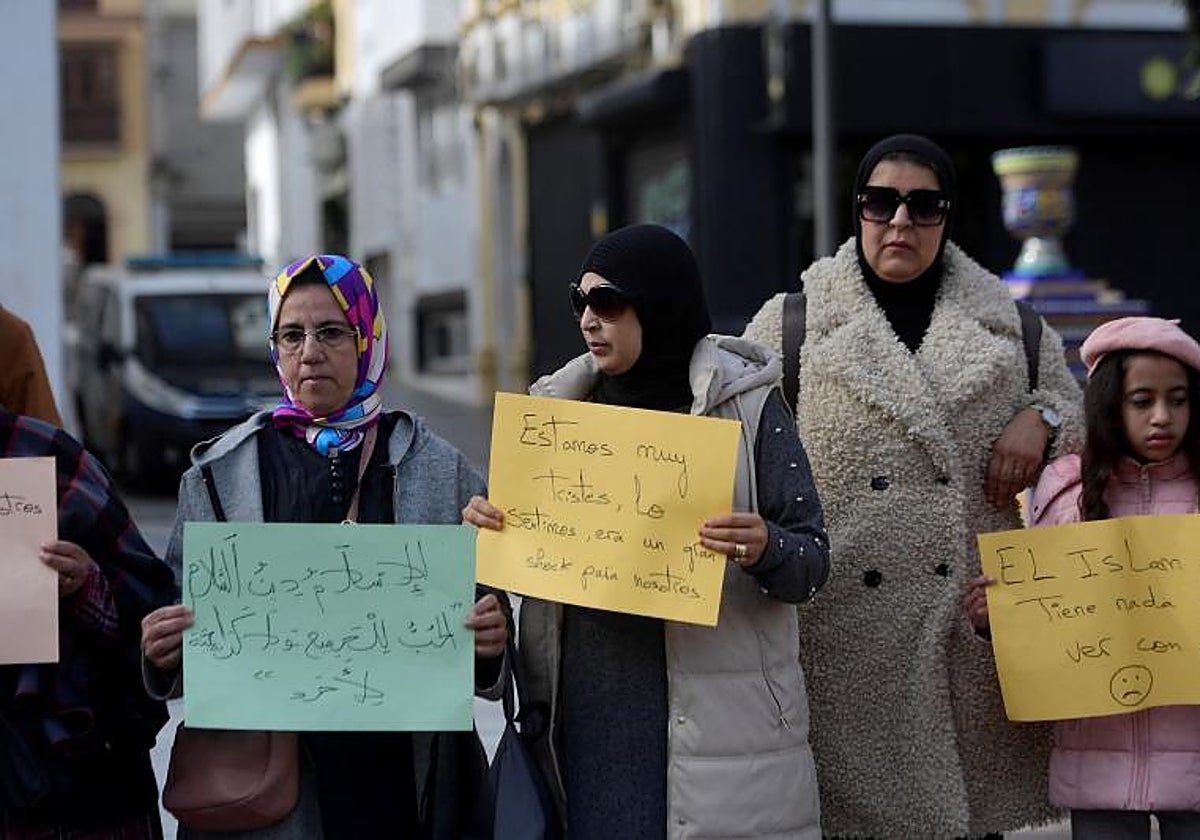 otros
الإسلام دينُ السَّلام
"الحُبُّ لِلْجميع ولا كراهية
لأحد"
Estamos muy
tristes, lo
sentimos, era un gran
shock para nosotros.
EL Islam
Tiene nada
ver con